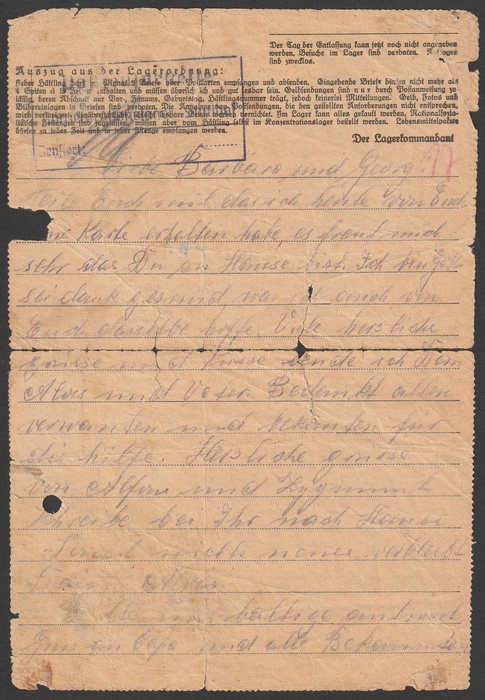 Der Tag der Entlassung kann jetzt noch nicht angegeben
werden. Besuche im Lager sind verboten. Anfragen
sind zwecklos.
Auszug aus der Lagerordnung:
Jeder Häftling darf im Monat 2 Briefe oder Postkarten empfangen und absenden. Eingehende Briefe dürfen nicht mehr als
4 Seiten à 15 Zeilen enthalten und müssen übersichtlich und gut lesbar sein. Geldsendungen sind nur durch Postanweisung zu-
lässig, deren Abschnitt nur Vor-, Zuname, Geburtstag, Häftlingsnummer trägt, jedoch keinerlei Mitteilungen. Geld, Fotos und
Bildereinlagen in Briefen sind verboten. Die Annahme von Postsendungen, die den gestellten Anforderungen nicht entsprechen,
wird verweigert. Unübersichtliche, schlecht lesbare Briefe werden vernichtet. Im Lager kann alles gekauft werden. Nationalsozia-
listische Zeitungen sind zugelassen, müssen aber vom Häftling selbst im Konzentrationslager bestellt werden. Lebensmittelpakete
dürfen zu jeder Zeit und in jeder Menge empfangen werden.
Der Lagerkommandant
Liebe Barbara und Georg!
Euch und das ich heute von Euch
eine Karte erhalten habe, es freut mich
sehr das Du zu Hause bist. Ich bin Gott
sei dank gesund, was ich auch von
Euch dasselbe hoffe. Viele herzliche
grüsse und küsse sende ich Dein
Alois und Vater. Bedankt allen
verwanten und bekanten für
die hilfe. Herzliche grüsse
von und Zygmunt
schreibe bei Ihr nach Hause
Sonst nichts neues verbleibt
Euer Alois
Bitte um baldige antwort
Gruss an und alle Bekannten